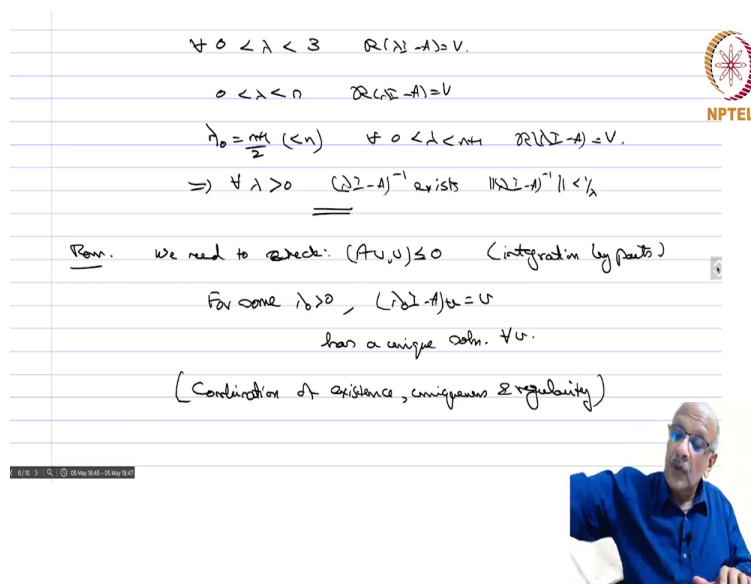 ∀ 0 < λ < 3   R(λI-A)=V.
0 < λ < n   R(λI-A)=V
λ₀ = (n+1)/2 (<n)   ∀ 0 < λ < n+1   R(λI-A)=V.
⇒ ∀ λ > 0   (λI-A)⁻¹ exists   ||(λI-A)⁻¹|| < 1/λ
Rem. We need to check: (Au,u) ≤ 0   (integration by parts)
For some λ₀>0, (λ₀I-A)u = v
has a unique soln. ∀v.
(Combination of existence, uniqueness & regularity)
NPTEL
6/10 05 May 18:46 - 05 May 18:47